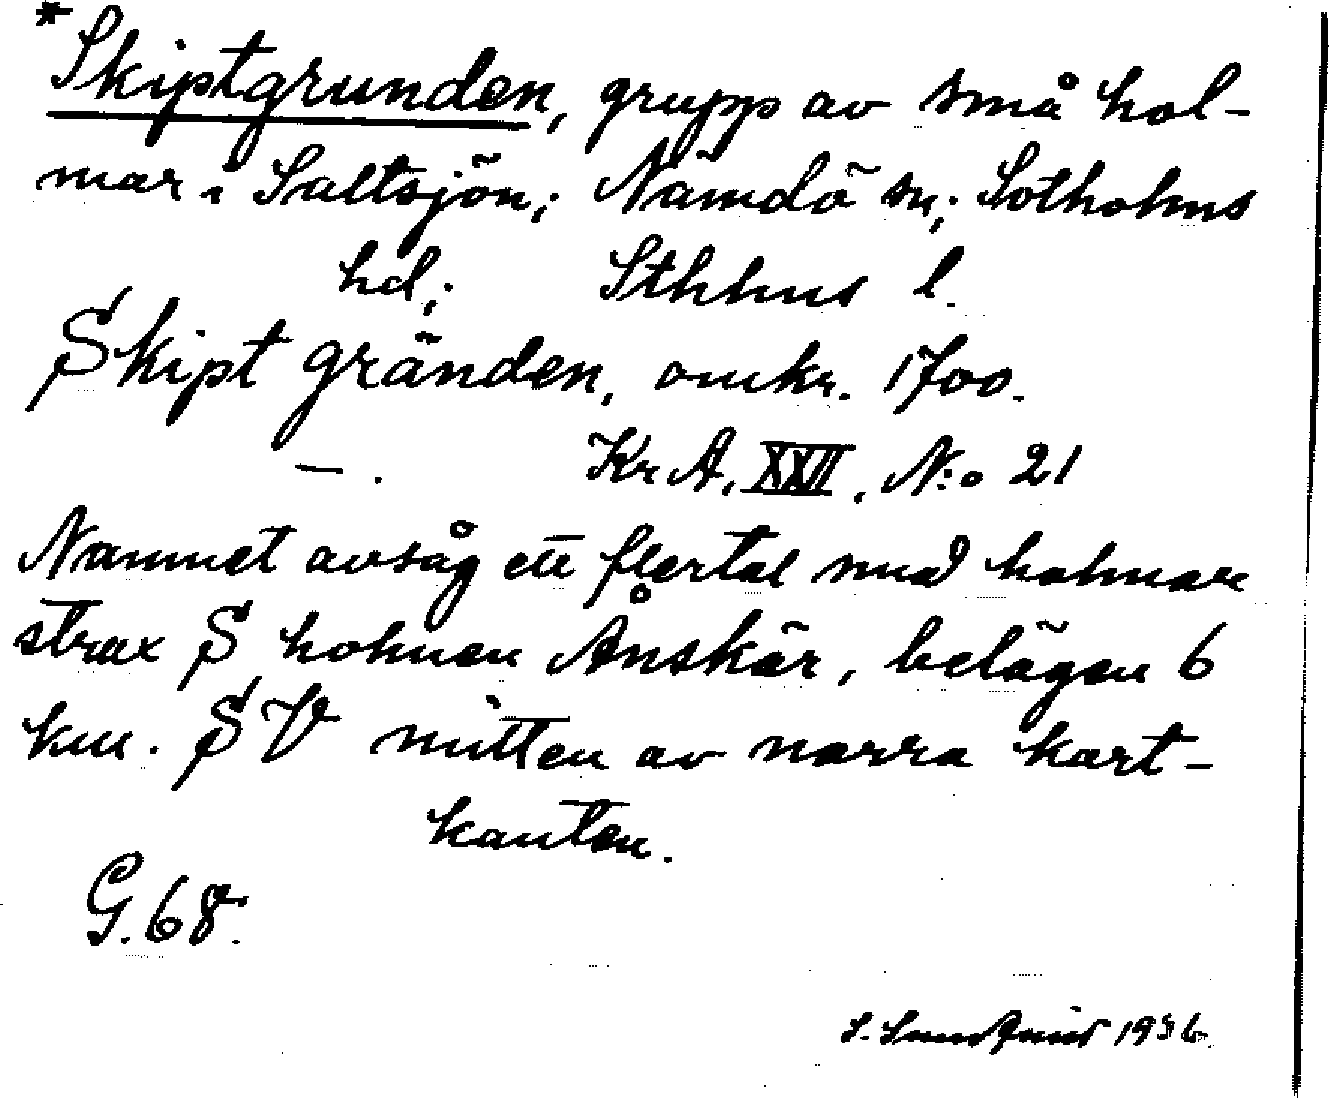 *Skiptgrunden, grupp av små hol-
mar i Saltsjön; Nämdö sn; Sotholms
hd; Sthlms l.
Skipt gränden, omkr. 1700.
—. Kr A, XXII, N:o 21
Namnet avsåg ett flertal små holmar
strax S holmen Ånskär, belägen 6
km. SV mitten av norra kart-
kanten.
G. 68.
S. 1936